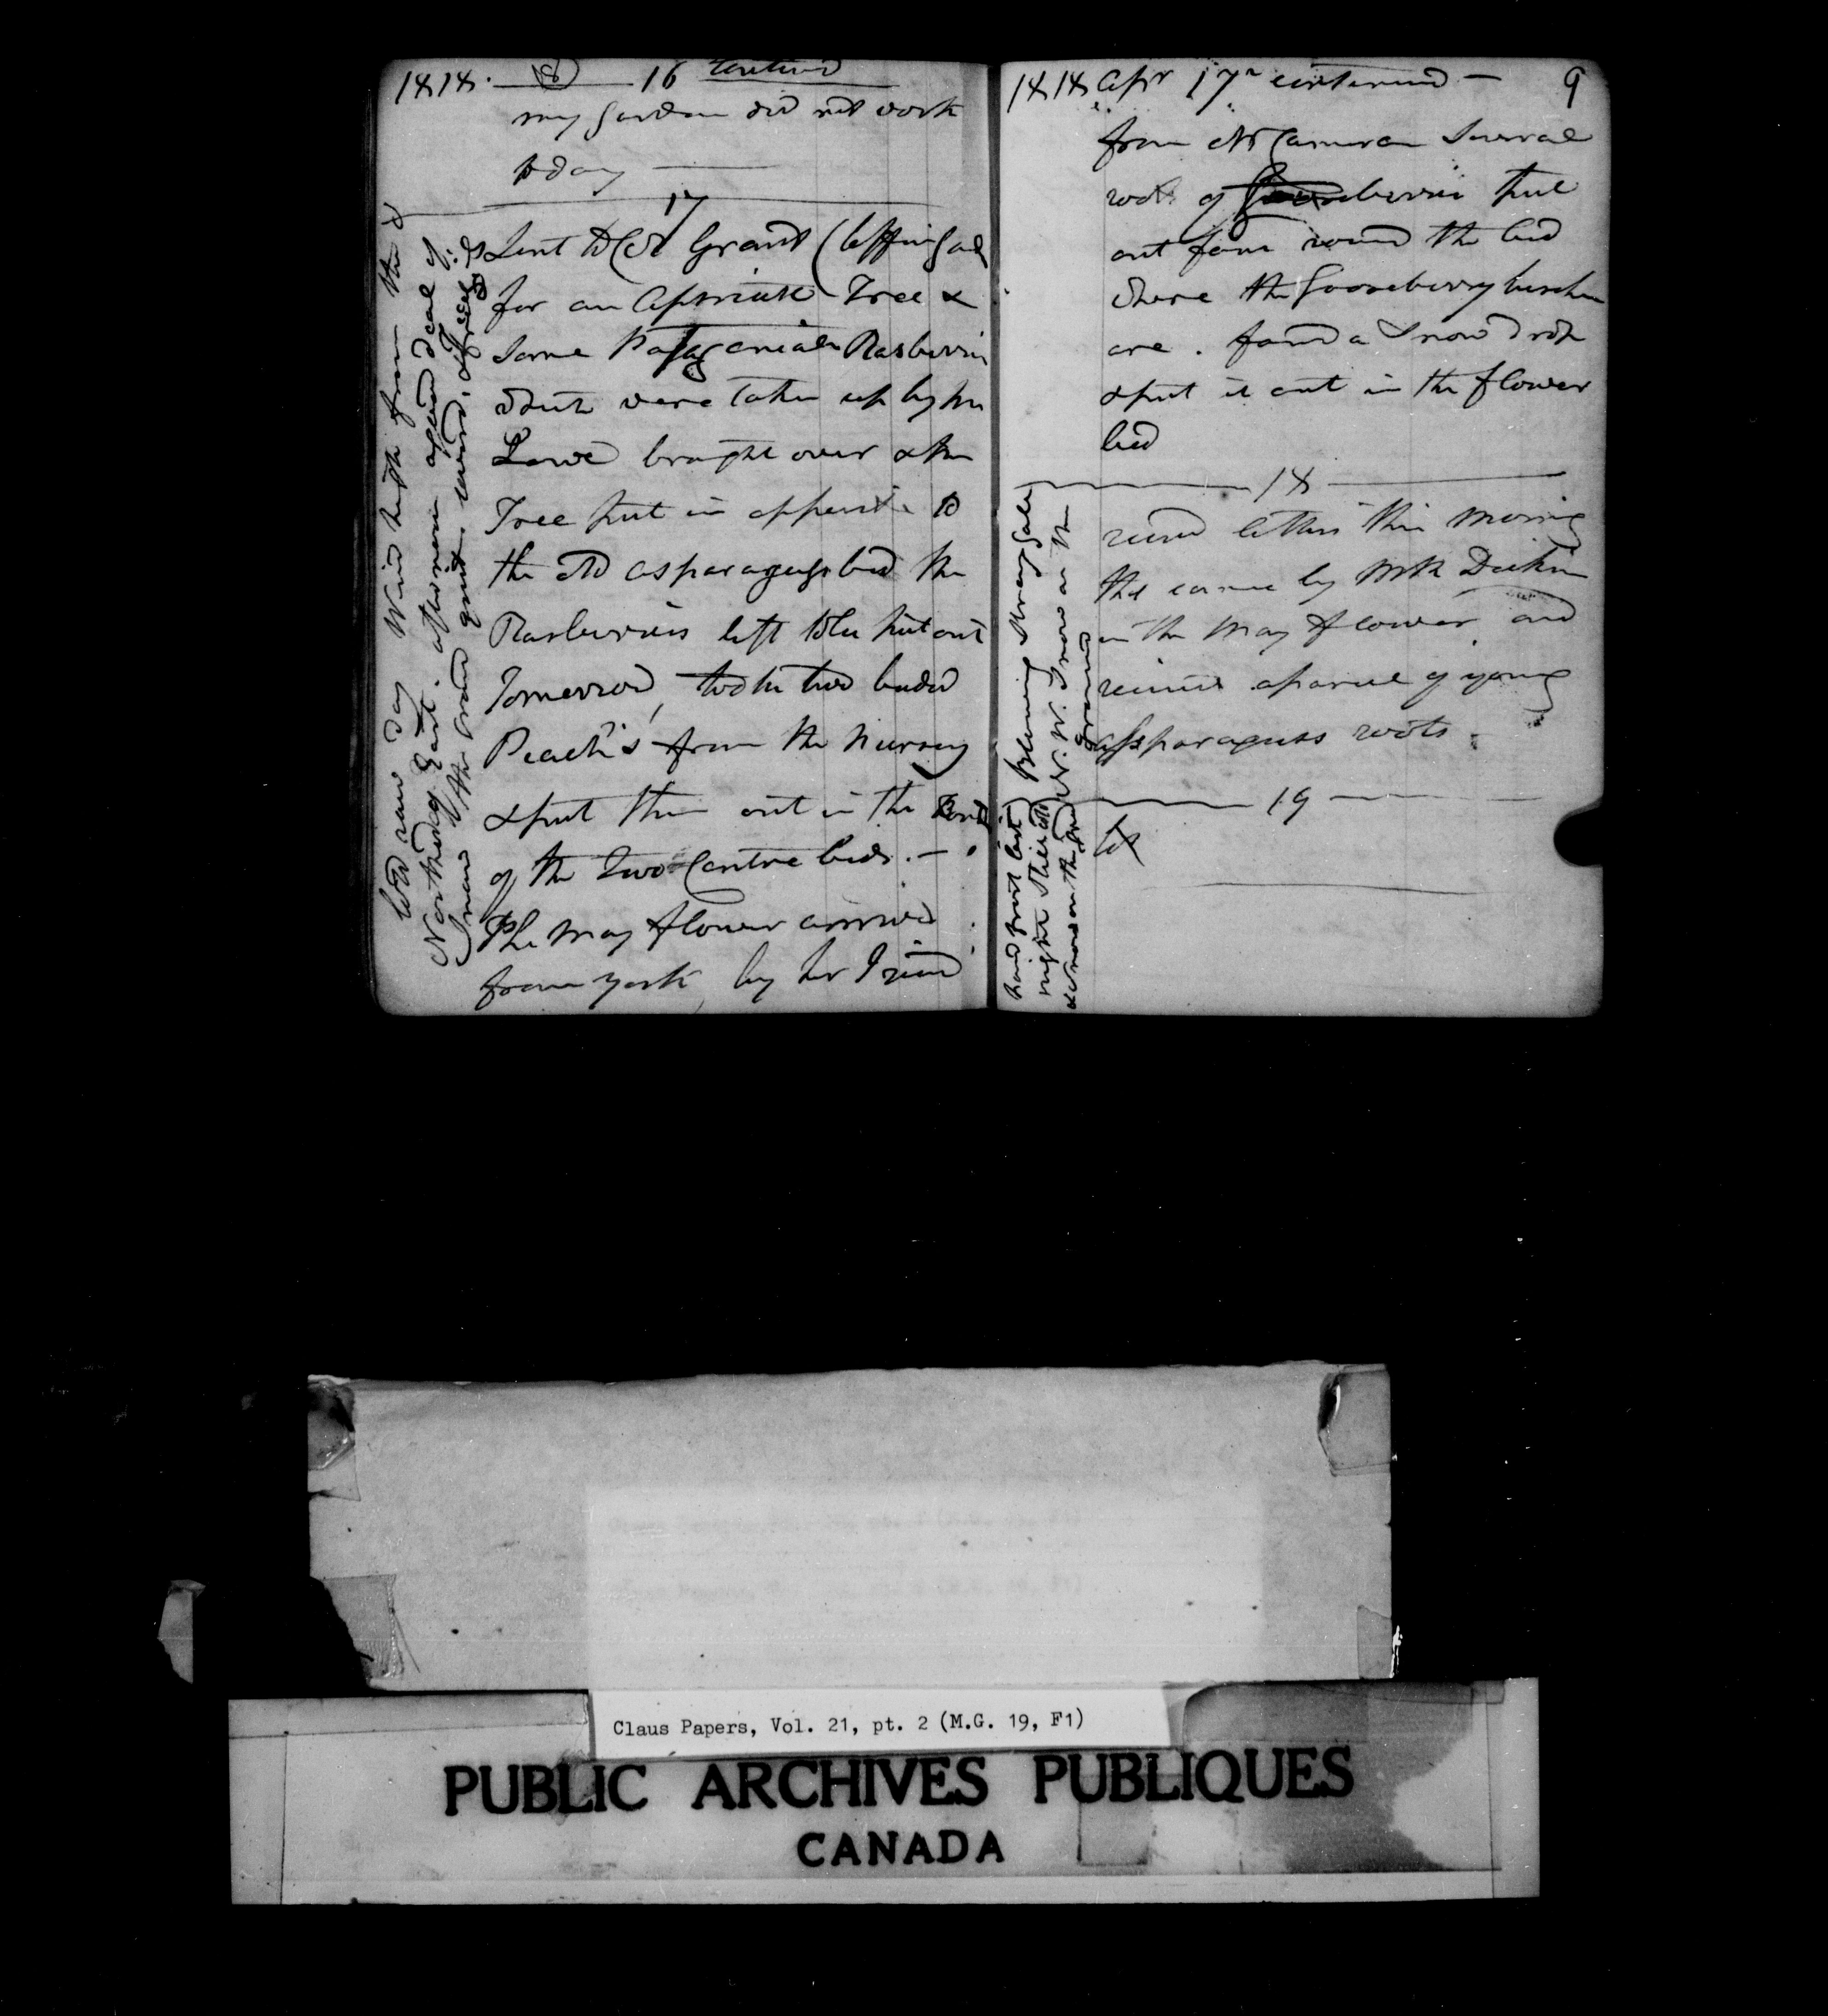 1818. 16 Continued
my garden did not work
to day
17
Sent to Col Grant
for an Apricott Tree &
some Patagonian Rasberries
which were taken up by
brought over & the
Tree put in opposite to
the old asparagus bed the
Rasberries left to be put out
Tomorrow, took two budded
Peach's from the nursery
& put them out in the
of the Two Centre beds. —
The May flower arrived
from york by her I
Cold raw day Wind high from the
North East. afternoon a good deal of
Snow the ground quite
1818 Apr 17 continued — 9
from Mr Cameron Several
roots of berries put
out some round the bed
where the Gooseberry bushes
are. found a Snow drop
& put it out in the flower
bed
18
letters this morning
by Mr
in the May flower and
a parcel of young
asparaguss roots.
Blowing Strong Gale
N. W. Snow on the
Ground
hard frost last
night
& snow on the
19
Claus Papers, Vol. 21, pt. 2 (M.G. 19, F1)
PUBLIC ARCHIVES PUBLIQUES
CANADA